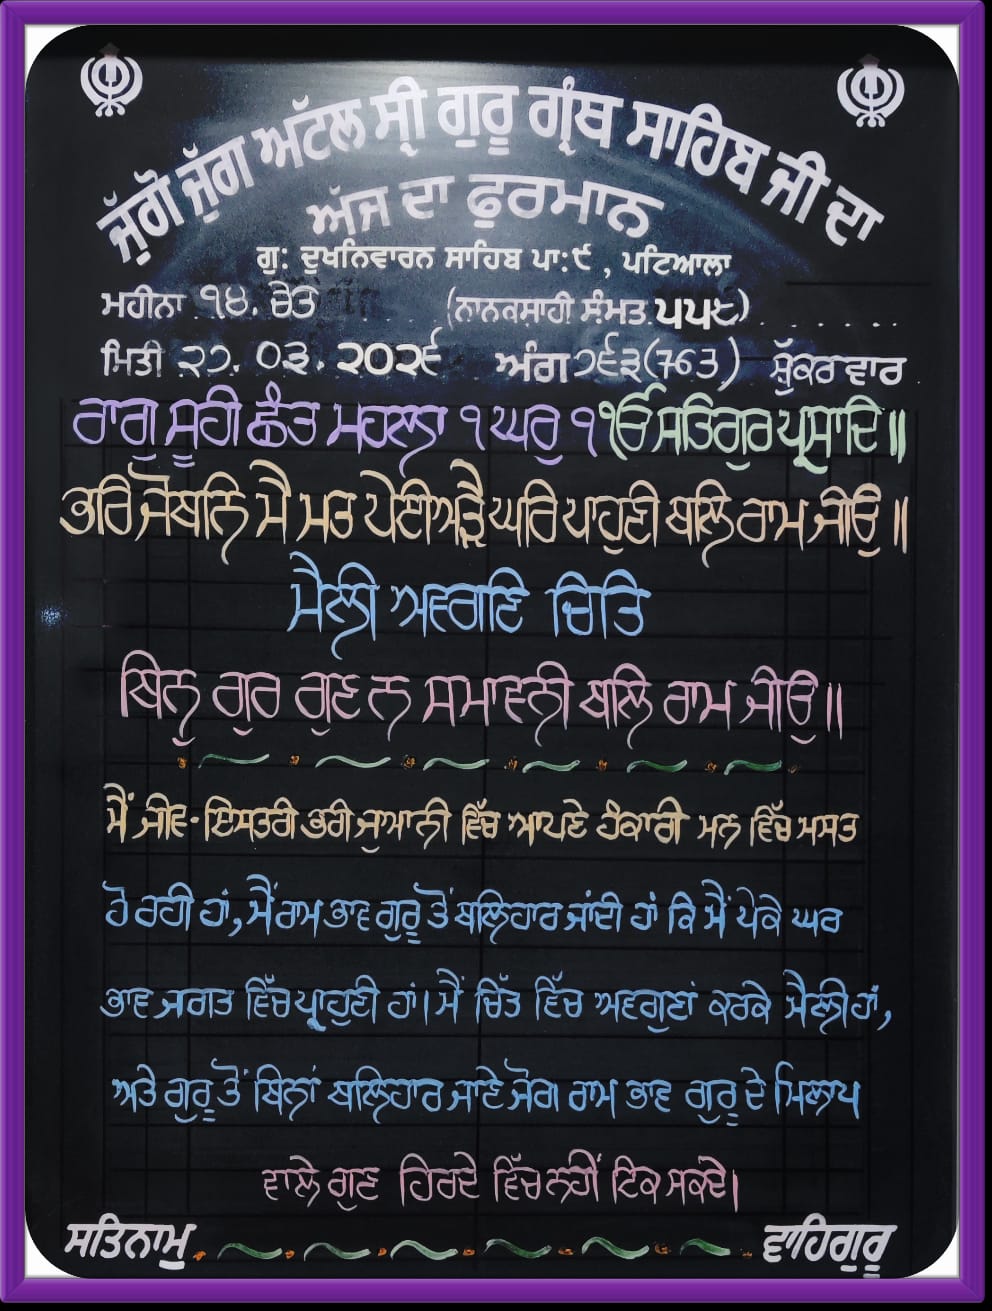 ਜੁੱਗੋ ਜੁੱਗ ਅਟੱਲ ਸ੍ਰੀ ਗੁਰੂ ਗ੍ਰੰਥ ਸਾਹਿਬ ਜੀ ਦਾ
ਅੱਜ ਦਾ ਫੁਰਮਾਨ
ਗੁ: ਦੁਖਨਿਵਾਰਨ ਸਾਹਿਬ ਪਾ:੯ , ਪਟਿਆਲਾ
ਮਹੀਨਾ ੧੪. ਚੇਤ (ਨਾਨਕਸ਼ਾਹੀ ਸੰਮਤ ੫੫੮)
ਮਿਤੀ ੨੭. ੦੩. ੨੦੨੬ ਅੰਗ ੭੬੩(763) ਸ਼ੁੱਕਰ ਵਾਰ
ਰਾਗੁ ਸੂਹੀ ਛੰਤ ਮਹਲਾ ੧ ਘਰੁ ੧ ੴ ਸਤਿਗੁਰ ਪ੍ਰਸਾਦਿ॥
ਭਰਿ ਜੋਬਨਿ ਮੈ ਮਤ ਪੇਈਅੜੈ ਘਰਿ ਪਾਹੁਣੀ ਬਲਿ ਰਾਮ ਜੀਉ॥
ਮੈਲੀ ਅਵਗਣਿ ਚਿਤਿ
ਬਿਨੁ ਗੁਰ ਗੁਣ ਨ ਸਮਾਵਨੀ ਬਲਿ ਰਾਮ ਜੀਉ॥
ਮੈਂ ਜੀਵ-ਇਸਤਰੀ ਭਰੀ ਜੁਆਨੀ ਵਿੱਚ ਆਪਣੇ ਹੰਕਾਰੀ ਮਨ ਵਿੱਚ ਮਸਤ
ਹੋ ਰਹੀ ਹਾਂ, ਮੈਂ ਰਾਮ ਭਾਵ ਗੁਰੂ ਤੋਂ ਬਲਿਹਾਰ ਜਾਂਦੀ ਹਾਂ ਕਿ ਮੈਂ ਪੇਕੇ ਘਰ
ਭਾਵ ਜਗਤ ਵਿੱਚ ਪ੍ਰਾਹੁਣੀ ਹਾਂ। ਮੈਂ ਚਿੱਤ ਵਿੱਚ ਅਵਗੁਣਾਂ ਕਰਕੇ ਮੈਲੀ ਹਾਂ,
ਅਤੇ ਗੁਰੂ ਤੋਂ ਬਿਨਾਂ ਬਲਿਹਾਰ ਜਾਣੇ ਜੋਗ ਰਾਮ ਭਾਵ ਗੁਰੂ ਦੇ ਮਿਲਾਪ
ਵਾਲੇ ਗੁਣ ਹਿਰਦੇ ਵਿੱਚ ਨਹੀਂ ਟਿਕ ਸਕਦੇ।
ਸਤਿਨਾਮੁ ਵਾਹਿਗੁਰੂ